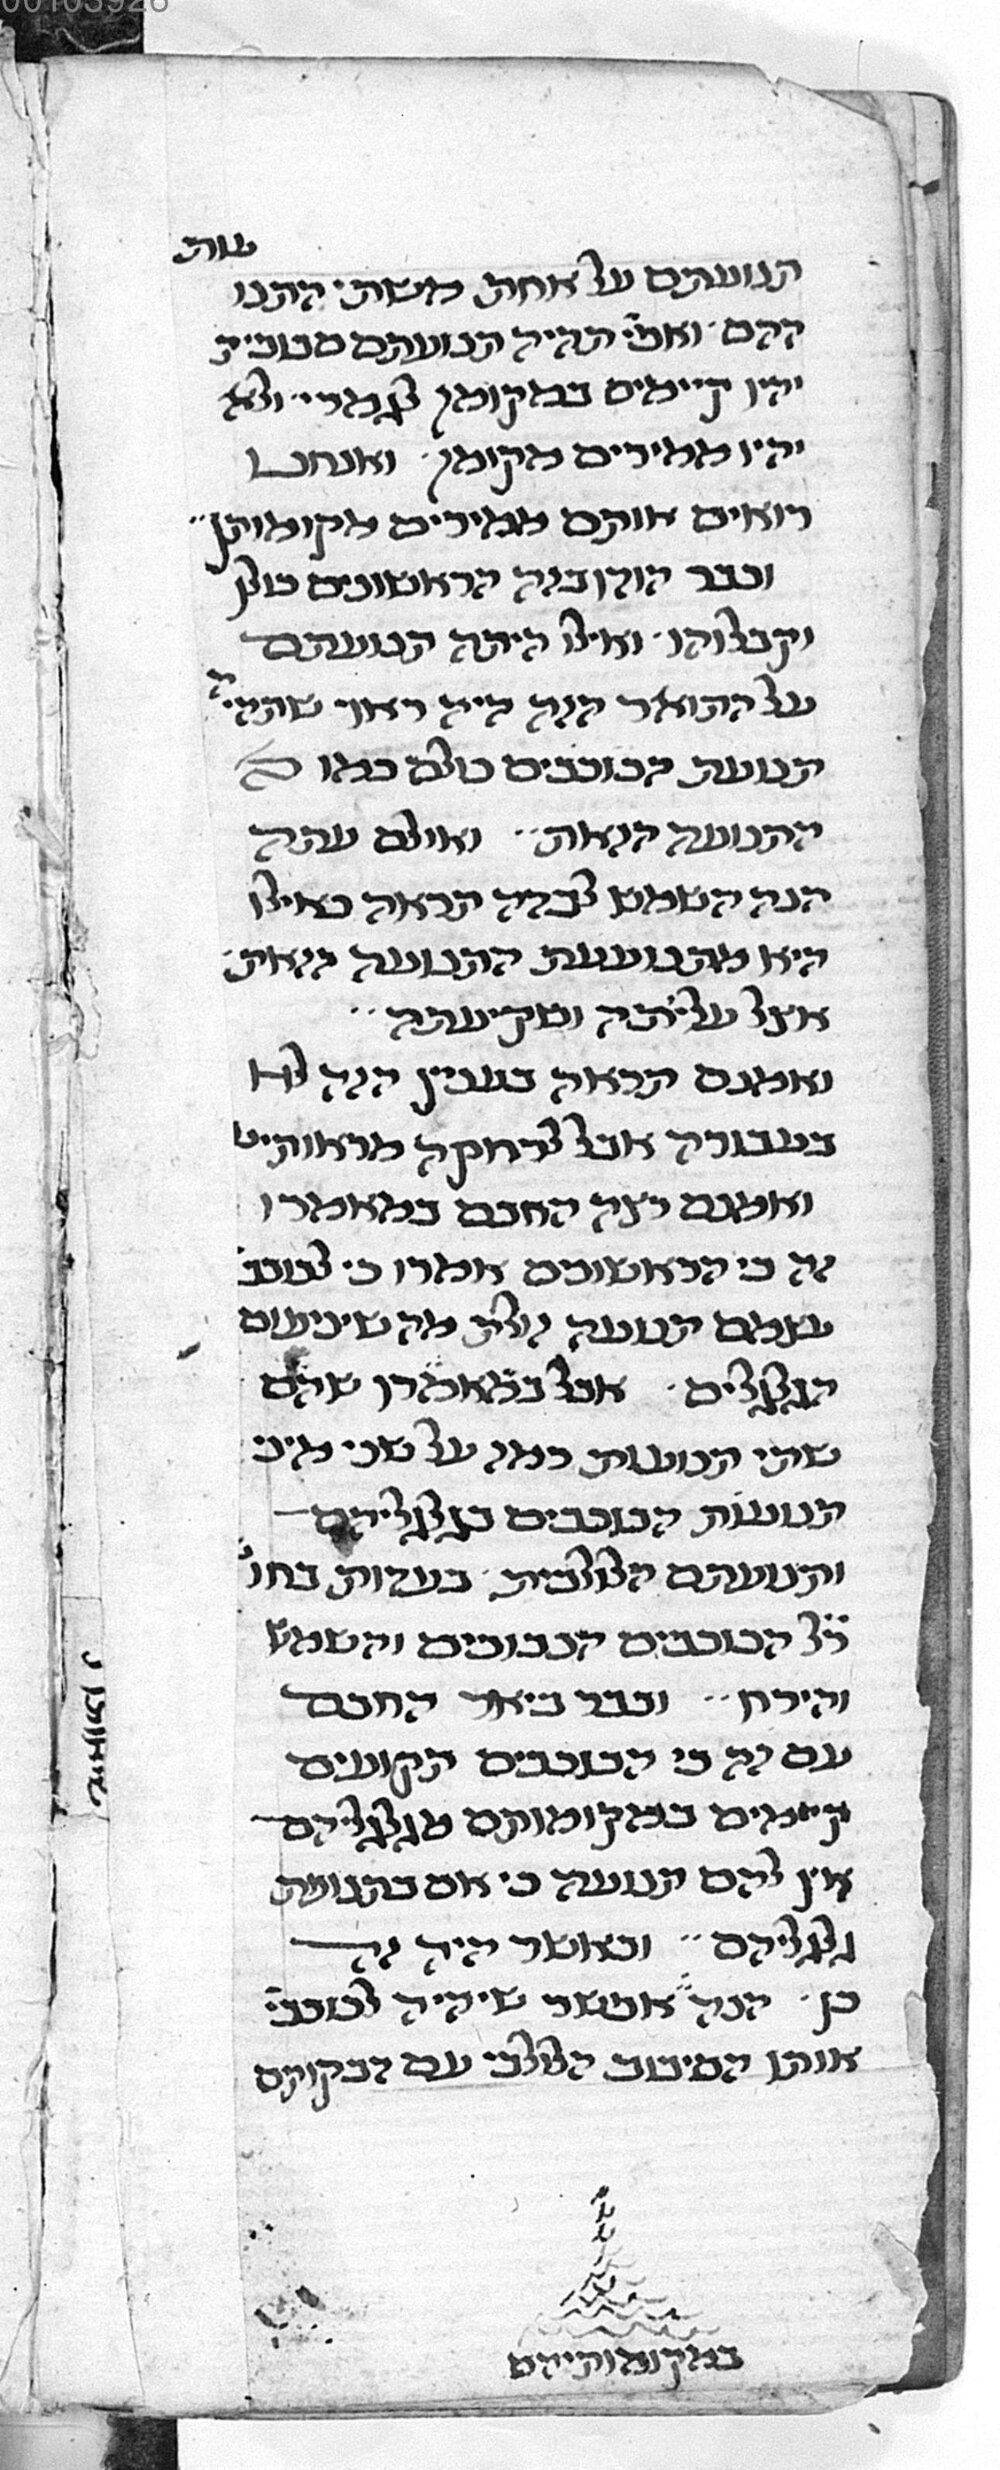 00103926
שות
תנועתם על אחת משתי התנו
ההם · ואם תהיה תנועתם סבובית
יהיו קיימים במקומן לגמרי · ולא
יהיו ממירים מקומן · ואנחנו
רואים אותם ממירים מקומותן ··
וכבר הודו בזה הראשונים כולן
וקבלוהו · ואילו היתה תנועתם
על התואר הזה היה ראוי שתהיה
תנועת הכוכבים כולם כמו
התנועה הזאת ·· ואולם עתה
הנה השמש לבדה תראה כאילו
היא מתנועעת התנועה הזאת ·
אצל עליתה ושקיעתה ··
ואמנם תראה בענין הזה לא
בעבורה אבל לרחקה מראותינו
ואמנם רצה החכם במאמרו
זה כי הראשונים אמרו כי לכוכבי
עצמם תנועה זולת מה שיניעום
הגלגלים · אבל במאמרן שהם
שתי תנועות רמז על שני מיני
תנועות הכוכבים בגלגליהם
ותנועתם הלולבית · בעדות בחוש
ר״ל הכוכבים הנבוכים והשמש
והירח ·· וכבר ביאר החכם
עם זה כי הכוכבים תקועים
קיימים במקומותם מגלגליהם
אין להם תנועה כי אם בתנועת
גלגליהם ·· וכאשר היה זה
כן · הנה אפשר שיהיה לכוכבי
אותו הסיבוב הלולבי עם דבקותם
במקומותיהם